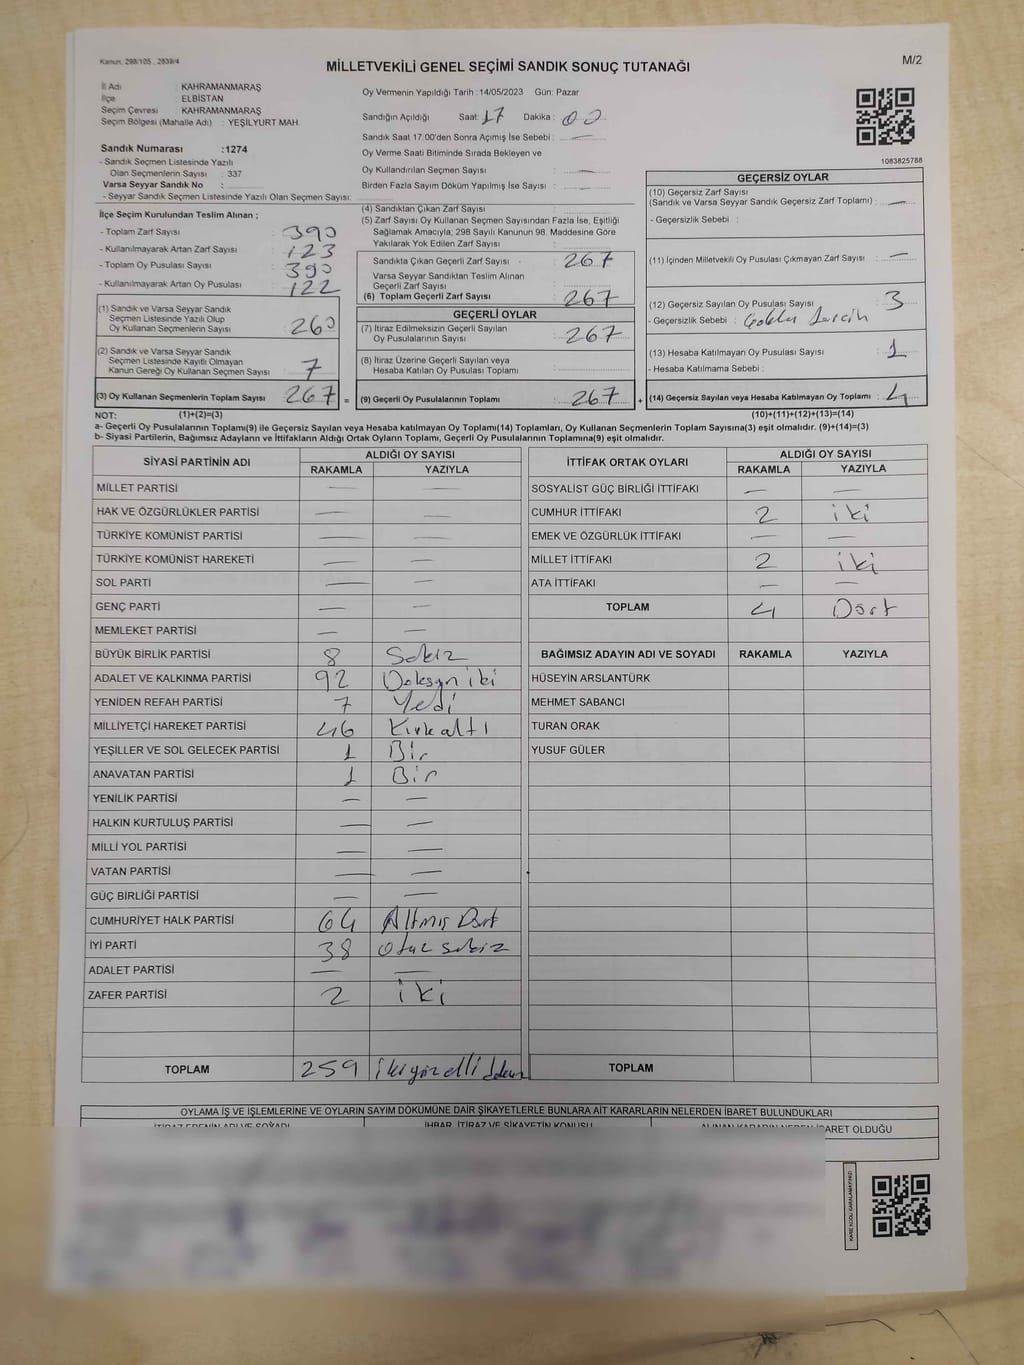 Kanun: 298/105 , 2839/4
MİLLETVEKİLİ GENEL SEÇİMİ SANDIK SONUÇ TUTANAĞI
M/2
İl Adı : KAHRAMANMARAŞ
İlçe : ELBİSTAN
Seçim Çevresi : KAHRAMANMARAŞ
Seçim Bölgesi (Mahalle Adı) : YEŞİLYURT MAH.
Sandık Numarası :1274
- Sandık Seçmen Listesinde Yazılı
Olan Seçmenlerin Sayısı : 337
Varsa Seyyar Sandık No :
- Seyyar Sandık Seçmen Listesinde Yazılı Olan Seçmen Sayısı:
Oy Vermenin Yapıldığı Tarih :14/05/2023 Gün: Pazar
Sandığın Açıldığı Saat: 17 Dakika : 00
Sandık Saat 17.00'den Sonra Açımış İse Sebebi : —
Oy Verme Saati Bitiminde Sırada Bekleyen ve
Oy Kullandırılan Seçmen Sayısı : —
Birden Fazla Sayım Döküm Yapılmış İse Sayısı : —
1083825788
İlçe Seçim Kurulundan Teslim Alınan ;
- Toplam Zarf Sayısı : 390
- Kullanılmayarak Artan Zarf Sayısı : 123
- Toplam Oy Pusulası Sayısı : 390
- Kullanılmayarak Artan Oy Pusulası : 122
(1) Sandık ve Varsa Seyyar Sandık
Seçmen Listesinde Yazılı Olup
Oy Kullanan Seçmenlerin Sayısı : 260
(2) Sandık ve Varsa Seyyar Sandık
Seçmen Listesinde Kayıtlı Olmayan
Kanun Gereği Oy Kullanan Seçmen Sayısı : 7
(3) Oy Kullanan Seçmenlerin Toplam Sayısı : 267 =
(4) Sandıktan Çıkan Zarf Sayısı :
(5) Zarf Sayısı Oy Kullanan Seçmen Sayısından Fazla İse, Eşitliği
Sağlamak Amacıyla; 298 Sayılı Kanunun 98. Maddesine Göre
Yakılarak Yok Edilen Zarf Sayısı :
Sandıkta Çıkan Geçerli Zarf Sayısı : 267
Varsa Seyyar Sandıktan Teslim Alınan
Geçerli Zarf Sayısı :
(6) Toplam Geçerli Zarf Sayısı : 267
GEÇERLİ OYLAR
(7) İtiraz Edilmeksizin Geçerli Sayılan
Oy Pusulalarının Sayısı : 267
(8) İtiraz Üzerine Geçerli Sayılan veya
Hesaba Katılan Oy Pusulası Toplamı :
(9) Geçerli Oy Pusulalarının Toplamı : 267 +
GEÇERSİZ OYLAR
(10) Geçersiz Zarf Sayısı
(Sandık ve Varsa Seyyar Sandık Geçersiz Zarf Toplamı) : —
- Geçersizlik Sebebi :
(11) İçinden Milletvekili Oy Pusulası Çıkmayan Zarf Sayısı : —
(12) Geçersiz Sayılan Oy Pusulası Sayısı : 3
- Geçersizlik Sebebi :
(13) Hesaba Katılmayan Oy Pusulası Sayısı : 1
- Hesaba Katılmama Sebebi :
(14) Geçersiz Sayılan veya Hesaba Katılmayan Oy Toplamı : 4
NOT: (1)+(2)=(3) (10)+(11)+(12)+(13)=(14)
a- Geçerli Oy Pusulalarının Toplamı(9) ile Geçersiz Sayılan veya Hesaba katılmayan Oy Toplamı(14) Toplamları, Oy Kullanan Seçmenlerin Toplam Sayısına(3) eşit olmalıdır. (9)+(14)=(3)
b- Siyasi Partilerin, Bağımsız Adayların ve İttifakların Aldığı Ortak Oyların Toplamı, Geçerli Oy Pusulalarının Toplamına(9) eşit olmalıdır.
SİYASİ PARTİNİN ADI ALDIĞI OY SAYISI
RAKAMLA YAZIYLA
MİLLET PARTİSİ — —
HAK VE ÖZGÜRLÜKLER PARTİSİ — —
TÜRKİYE KOMÜNİST PARTİSİ — —
TÜRKİYE KOMÜNİST HAREKETİ — —
SOL PARTİ — —
GENÇ PARTİ — —
MEMLEKET PARTİSİ — —
BÜYÜK BİRLİK PARTİSİ 8 Sekiz
ADALET VE KALKINMA PARTİSİ 92 Doksan iki
YENİDEN REFAH PARTİSİ 7 Yedi
MİLLİYETÇİ HAREKET PARTİSİ 46 Kırkaltı
YEŞİLLER VE SOL GELECEK PARTİSİ 1 Bir
ANAVATAN PARTİSİ 1 Bir
YENİLİK PARTİSİ — —
HALKIN KURTULUŞ PARTİSİ — —
MİLLİ YOL PARTİSİ — —
VATAN PARTİSİ — —
GÜÇ BİRLİĞİ PARTİSİ — —
CUMHURİYET HALK PARTİSİ 64 Altmış Dört
İYİ PARTİ 38 Otuz sekiz
ADALET PARTİSİ — —
ZAFER PARTİSİ 2 iki
TOPLAM 259 ikiyüzelli
İTTİFAK ORTAK OYLARI ALDIĞI OY SAYISI
RAKAMLA YAZIYLA
SOSYALİST GÜÇ BİRLİĞİ İTTİFAKI — —
CUMHUR İTTİFAKI 2 iki
EMEK VE ÖZGÜRLÜK İTTİFAKI — —
MİLLET İTTİFAKI 2 iki
ATA İTTİFAKI — —
TOPLAM 4 Dört
BAĞIMSIZ ADAYIN ADI VE SOYADI RAKAMLA YAZIYLA
HÜSEYİN ARSLANTÜRK
MEHMET SABANCI
TURAN ORAK
YUSUF GÜLER
TOPLAM
OYLAMA İŞ VE İŞLEMLERİNE VE OYLARIN SAYIM DÖKÜMÜNE DAİR ŞİKAYETLERLE BUNLARA AİT KARARLARIN NELERDEN İBARET BULUNDUKLARI
İTİRAZ EDENİN ADI VE SOYADI İHBAR, İTİRAZ VE ŞİKAYETİN KONUSU ALINAN KARARIN NEDEN İBARET OLDUĞU
KARE KODU KARALAMAYINIZ!